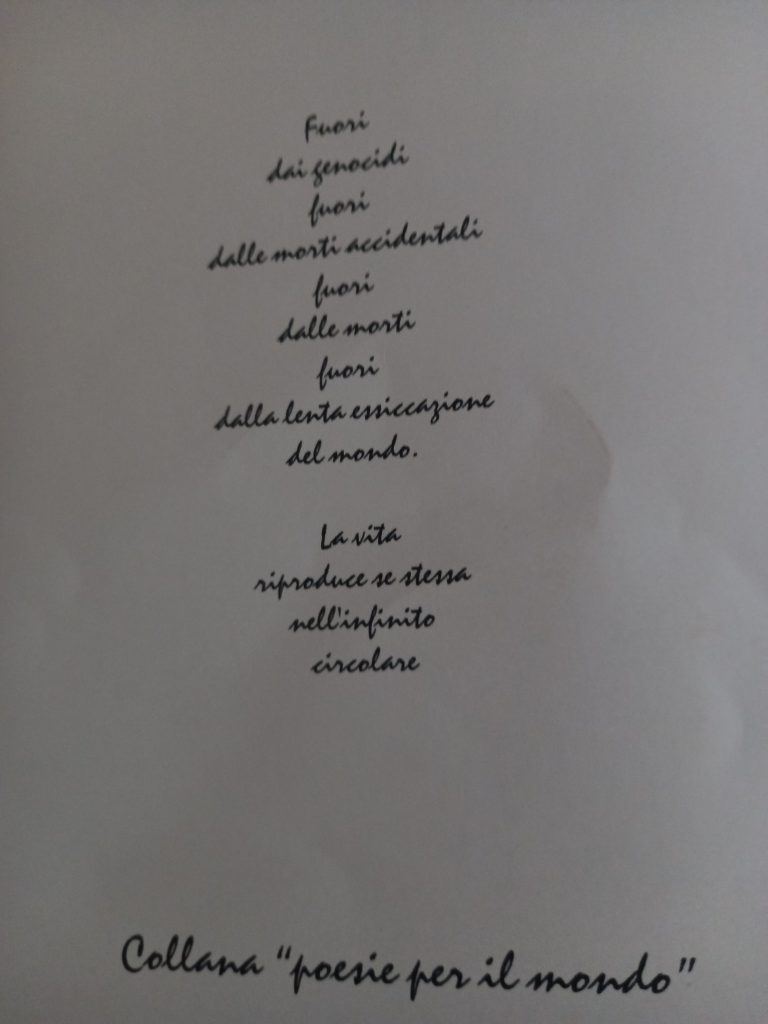 Fuori
dai genocidi
fuori
dalle morti accidentali
fuori
dalle morti
fuori
dalla lenta essiccazione
del mondo.
La vita
riproduce se stessa
nell'infinito
circolare
Collana "poesie per il mondo"